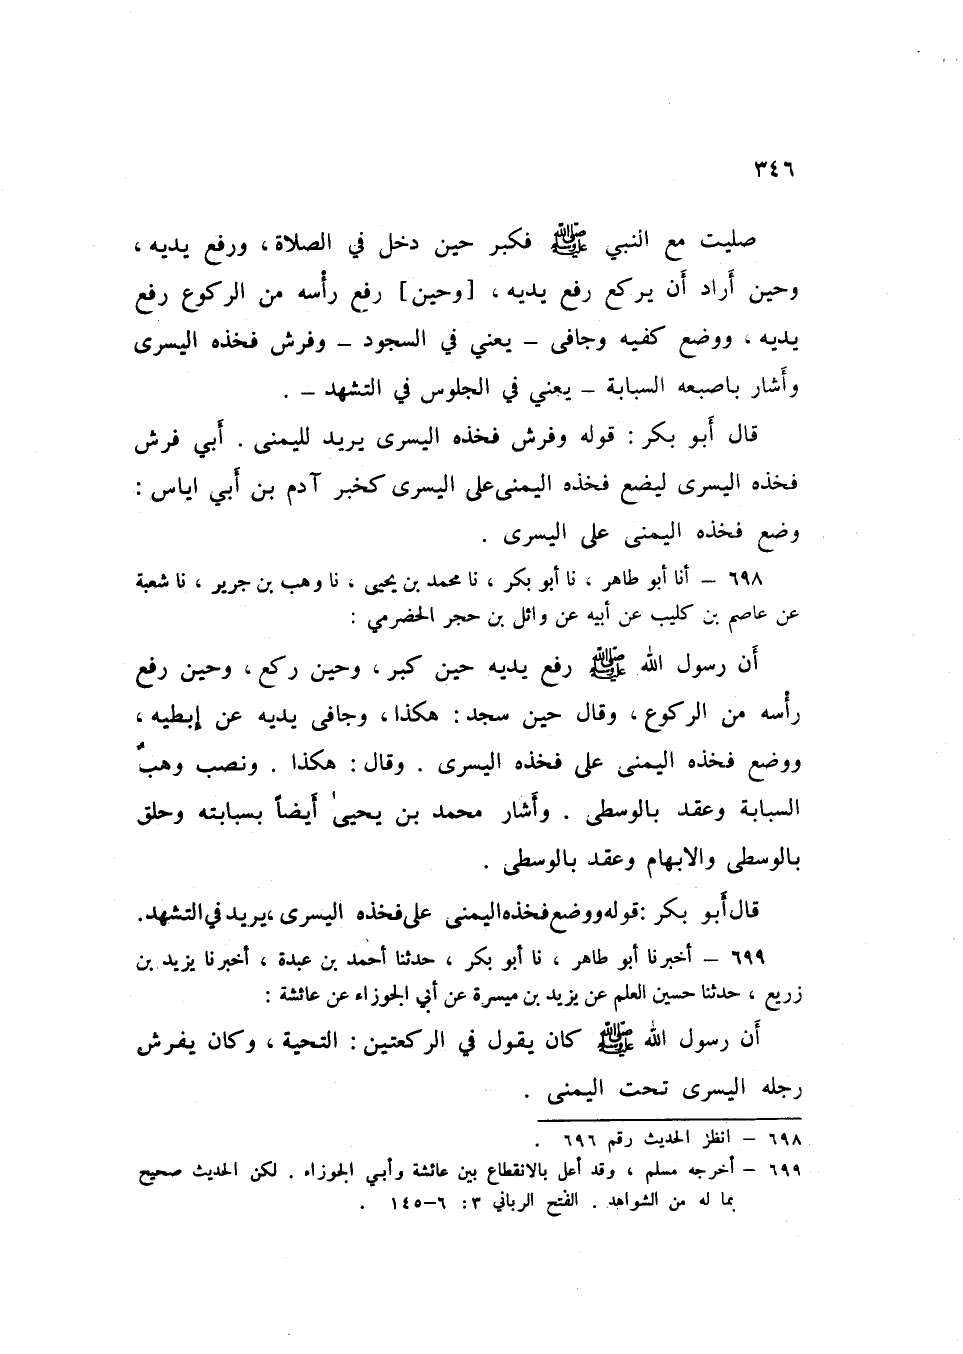 ٣٤٦
صليت مع النبي ﷺ فكبر حين دخل في الصلاة ، ورفع يديه ،
وحين أَراد أَن يركع رفع يديه ، [ وحين ] رفع رأْسه من الركوع رفع
يديه ، ووضع كفيه وجافى – يعني في السجود – وفرش فخذه اليسرى
وأَشار باصبعه السبابة – يعني في الجلوس في التشهد – .
قال أَبو بكر : قوله وفرش فخذه اليسرى يريد لليمنى . أَبي فرش
فخذه اليسرى ليضع فخذه اليمنى على اليسرى كخبر آدم بن أَبي اياس :
وضع فخذه اليمنى على اليسرى .
٦٩٨ – أنا أبو طاهر ، نا أبو بكر ، نا محمد بن يحيى ، نا وهب بن جرير ، نا شعبة
عن عاصم بن كليب عن أبيه عن وائل بن حجر الحضرمي :
أَن رسول الله ﷺ رفع يديه حين كبر ، وحين ركع ، وحين رفع
رأْسه من الركوع ، وقال حين سجد : هكذا ، وجافى يديه عن إبطيه ،
ووضع فخذه اليمنى على فخذه اليسرى . وقال : هكذا . ونصب وهبٌ
السبابة وعقد بالوسطى . وأَشار محمد بن يحيىٰ أَيضاً بسبابته وحلق
بالوسطى والابهام وعقد بالوسطى .
قال أَبو بكر : قوله ووضع فخذه اليمنى على فخذه اليسرى ، يريد في التشهد .
٦٩٩ – أخبرنا أبو طاهر ، نا أبو بكر ، حدثنا أحمد بن عبدة ، أخبرنا يزيد بن
زريع ، حدثنا حسين العلم عن يزيد بن ميسرة عن أبي الجوزاء عن عائشة :
أَن رسول الله ﷺ كان يقول في الركعتين : التحية ، وكان يفرش
رجله اليسرى تحت اليمنى .
٦٩٨ – انظر الحديث رقم ٦٩٦ .
٦٩٩ – أخرجه مسلم ، وقد أعل بالانقطاع بين عائشة وأبي الجوزاء . لكن الحديث صحيح
بما له من الشواهد . الفتح الرباني ٣ : ٦–١٤٥ .